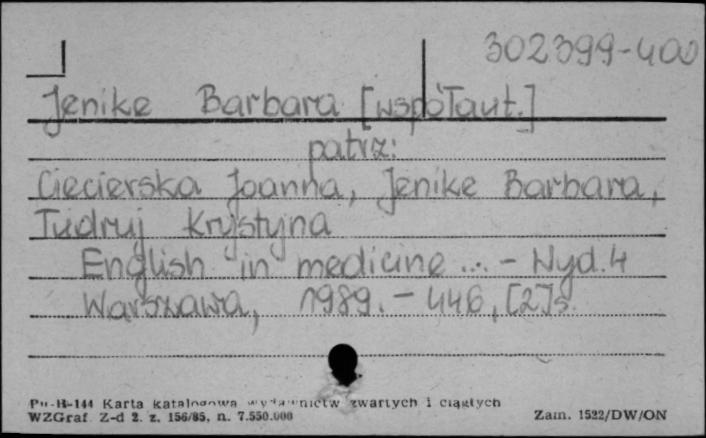 302399-400
Jenike Barbara [współaut.]
patrz:
Ciecierska Joanna, Jenike Barbara,
Tudruj Krystyna
English in medicine ... - Wyd. 4
Warszawa, 1989. - 446, [2] s.
Pu-H-144 Karta katalogowa wydawnictw zwartych i ciągłych
WZGraf. Z-d 2. z. 156/85, n. 7.550.000 Zam. 1522/DW/ON